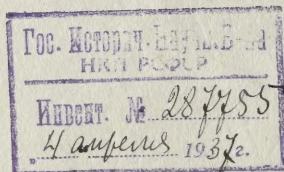 Гос. Историч. Научн. Б-ка
НКП РСФСР
Инвент. № 287755
„4 апреля 1937г.